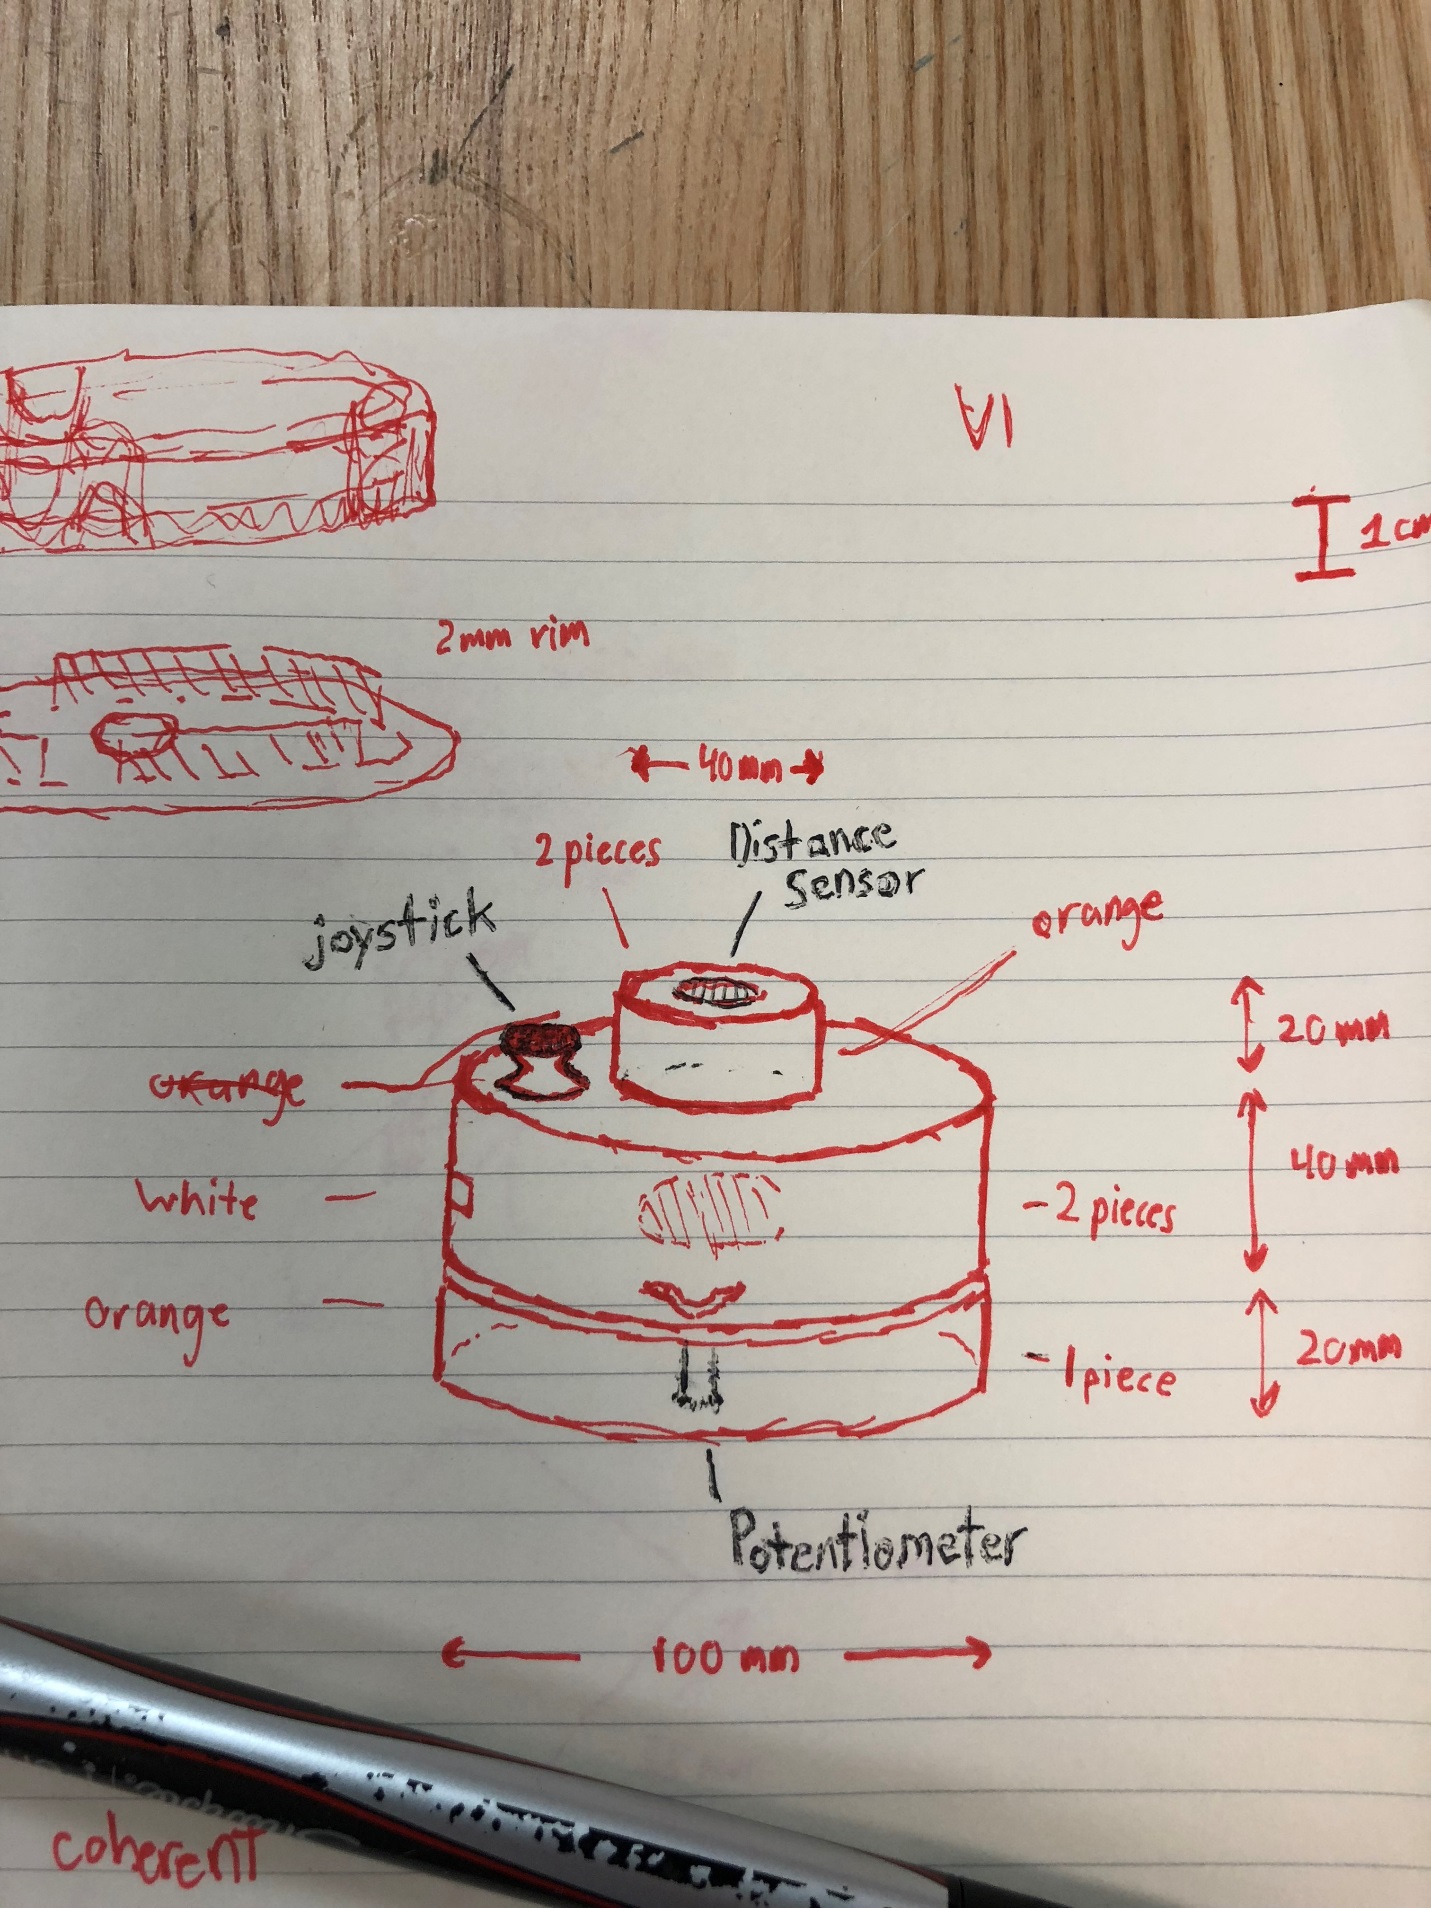 1cm
2mm rim
40mm
2 pieces
Distance
Sensor
joystick
orange
20mm
orange
40mm
White
-2 pieces
orange
20mm
-1 piece
Potentiometer
100 mm
coherent